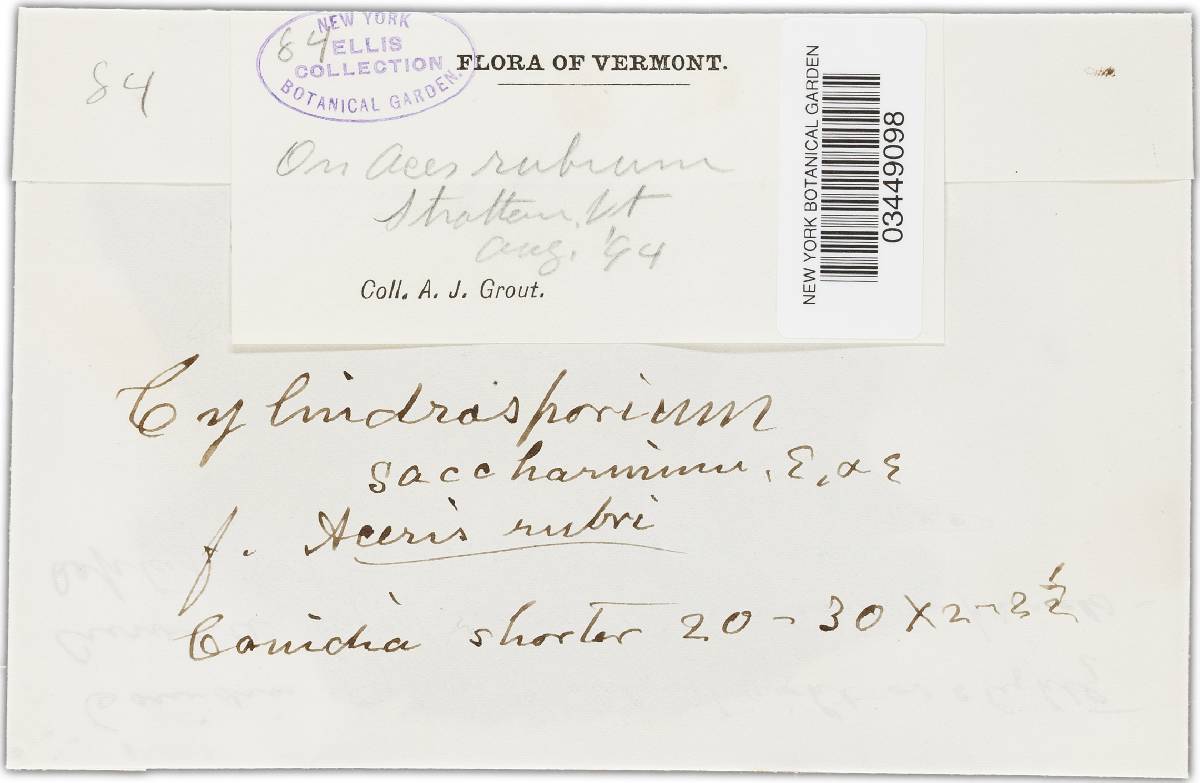 84
84
NEW YORK
ELLIS
COLLECTION
BOTANICAL GARDEN.
FLORA OF VERMONT.
On Acer rubrum
Stratton, Vt
Aug. '94
Coll. A. J. Grout.
NEW YORK BOTANICAL GARDEN
03449098
Cylindrosporium
saccharinum, E, & E
f. Aceris rubri
Conidia shorter 20-30 X 2-2½